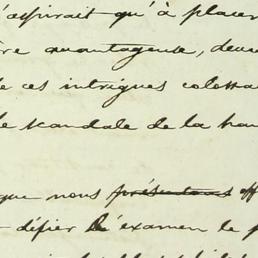 'aspirait qu'à placer
ère avantageuse, deve
e ces intrigues colossa
le scandale de la hau
que nous présentons off
défier l'examen le p